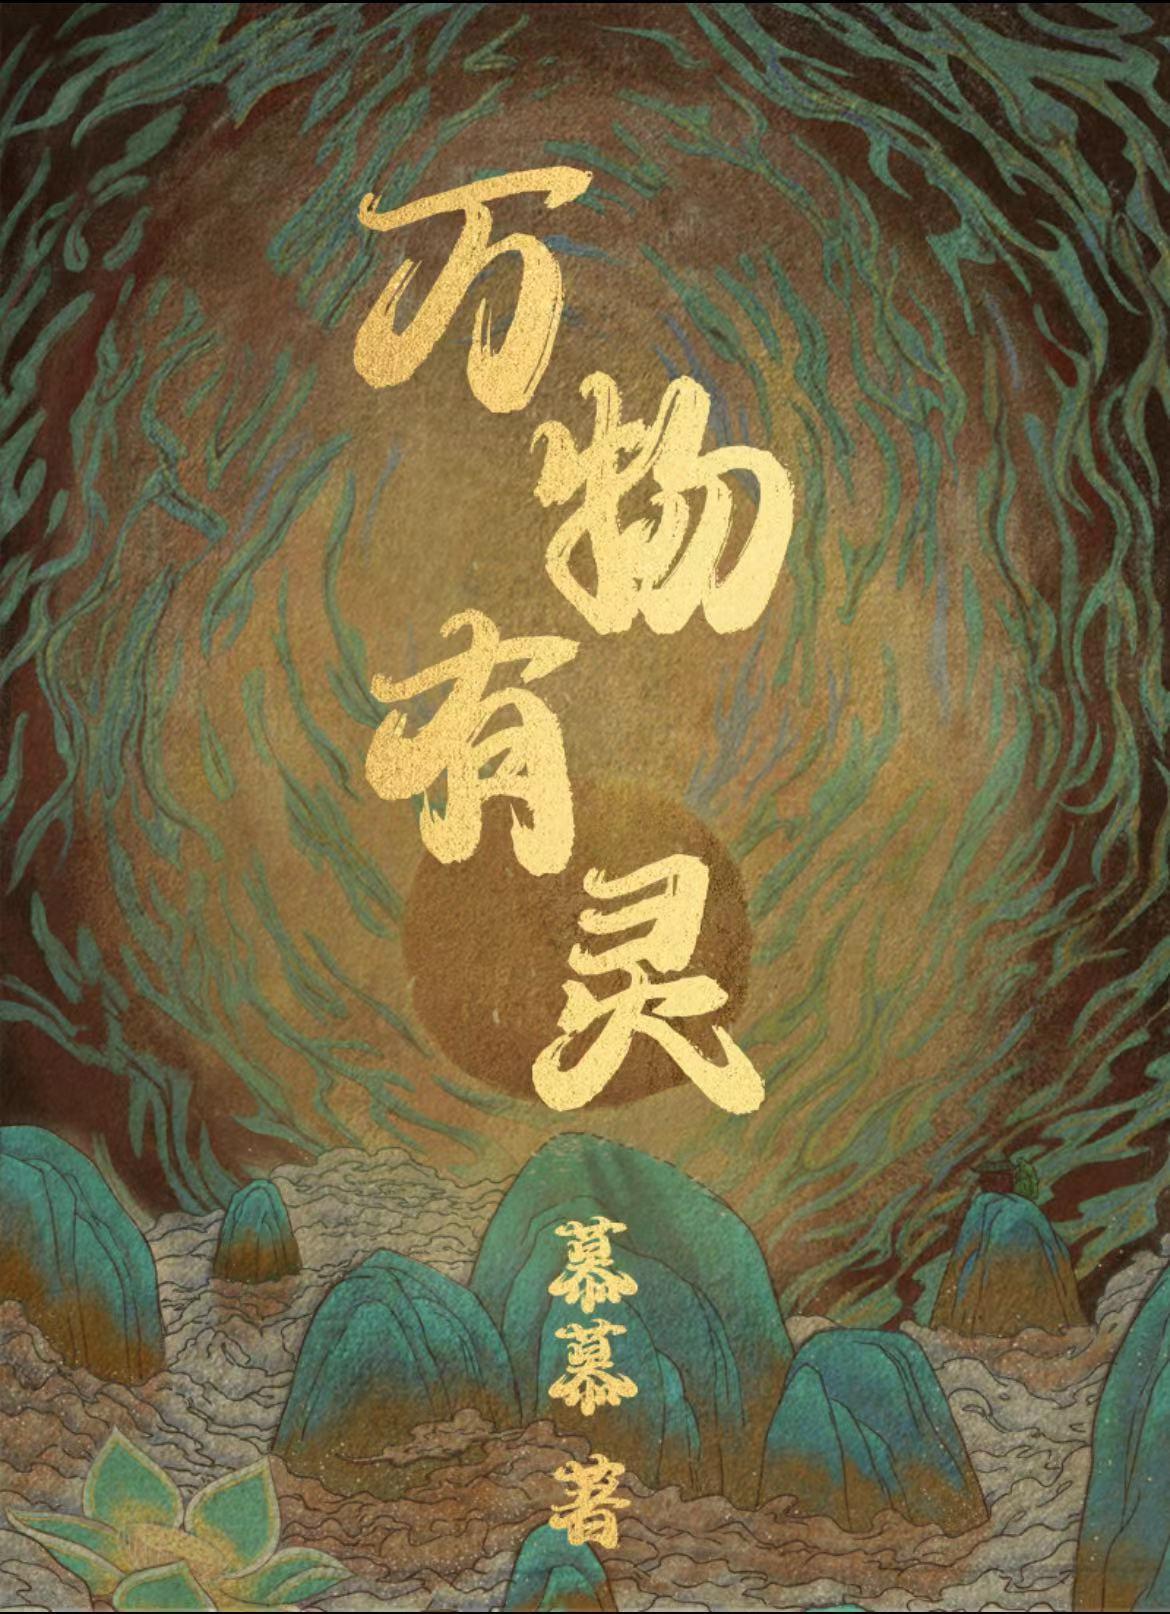 万物有灵
慕慕 著